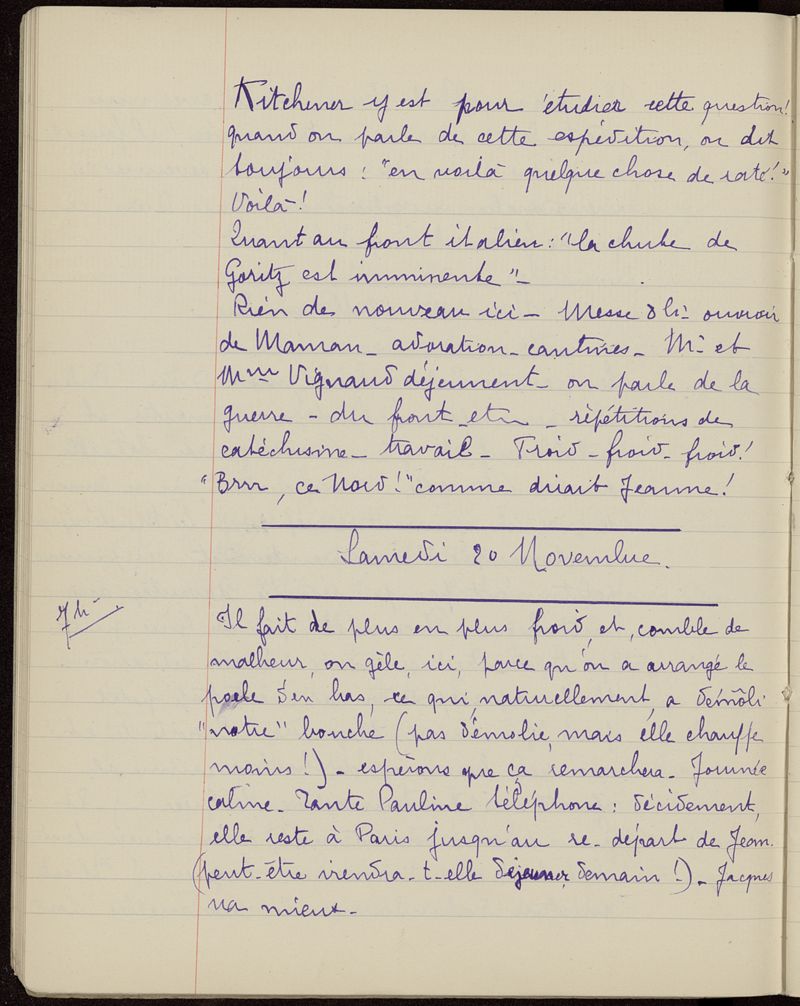 Kitchener y est pour étudier cette question!
quand on parle de cette expédition, on dit
toujours : "en voilà quelque chose de raté!"
Voilà-!
Quant au front italien : "la chute de
Goritz est imminente" -
Rien de nouveau ici - Messe 8h - ouvroir
de Maman - adoration - cantines - Mr et
Mme Vignaud déjeunent - on parle de la
guerre - du front - etc - répétitions de
catéchisme - travail - Froid - froid - froid!
"Brrr, ce Nord!" comme dirait Jeanne!
Samedi 20 Novembre.
7h -
Il fait de plus en plus froid, et, comble de
malheur, on gèle, ici, parce qu'on a arrangé le
poele d'en bas, ce qui, naturellement, a démoli
"notre" bouche (pas démolie, mais elle chauffe
moins!) - espérons que ça remarchera - Journée
calme - Tante Pauline téléphone : décidément,
elle reste à Paris jusqu'au re-départ de Jean.
(peut-être viendra-t-elle déjeuner demain!) - Jacques
va mieux -